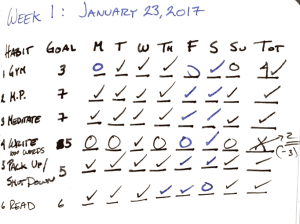 WEEK 1: JANUARY 23, 2017
HABIT GOAL M T W TH F S SU TOT
1 GYM 3 O ✓ ✓ ✓ ✓ O 4✓
2 M.P. 7 ✓ ✓ ✓ ✓ ✓ ✓ ✓ ✓
3 MEDITATE 7 ✓ ✓ ✓ ✓ ✓ ✓ ✓ ✓
4 WRITE 5 O O ✓ O O ✓ O X 2
WORDS (-3)
5 PACK UP/
SHUTDOWN 5 ✓ ✓ ✓ ✓ ✓ ✓ ✓ ✓
6 READ 6 ✓ ✓ ✓ ✓ ✓ O ✓ ✓